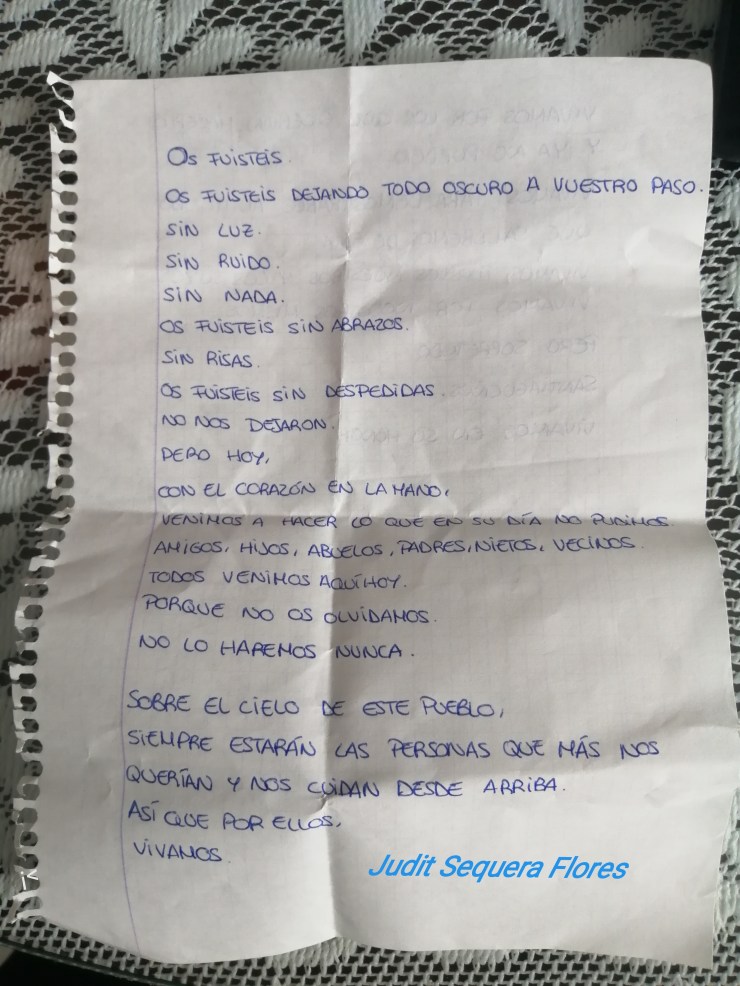 OS FUISTEIS.
OS FUISTEIS DEJANDO TODO OSCURO A VUESTRO PASO.
SIN LUZ.
SIN RUIDO.
SIN NADA.
OS FUISTEIS SIN ABRAZOS.
SIN RISAS.
OS FUISTEIS SIN DESPEDIDAS.
NO NOS DEJARON.
PERO HOY,
CON EL CORAZÓN EN LA MANO,
VENIMOS A HACER LO QUE EN SU DÍA NO PUDIMOS.
AMIGOS, HIJOS, ABUELOS, PADRES, NIETOS, VECINOS.
TODOS VENIMOS AQUÍ HOY.
PORQUE NO OS OLVIDAMOS.
NO LO HAREMOS NUNCA.
SOBRE EL CIELO DE ESTE PUEBLO,
SIEMPRE ESTARÁN LAS PERSONAS QUE MÁS NOS
QUERÍAN Y NOS CUIDAN DESDE ARRIBA.
ASÍ QUE POR ELLOS,
VIVAMOS.
Judit Sequera Flores